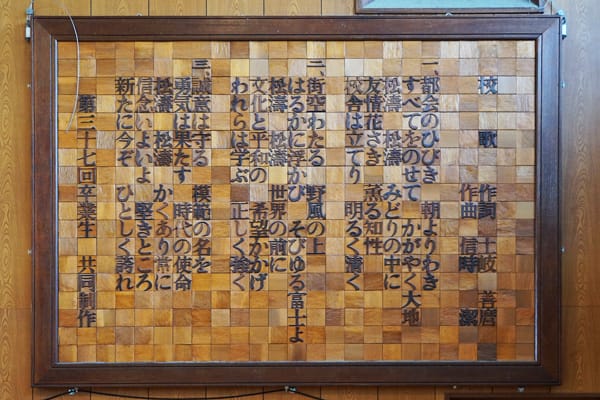 校歌 作詞 土岐善麿
作曲 信時潔
一、都会のひびき 朝よりわき
すべてをのせて かがやく大地
松濤 松濤 みどりの中に
友情花さき 薫る知性
校舎は立てり 明るく清く
二、街空わたる 野風の上
はるかに浮かび そびゆる富士よ
松濤 松濤 世界の前に
文化と平和の 希望かかげ
われらは学ぶ 正しく強く
三、誠意は守る 模範の名を
勇気は果たす 時代の使命
松濤 松濤 かくあり常に
信念いよいよ 堅きところ
新たに今ぞ ひとしく誇れ
第三十七回卒業生 共同制作